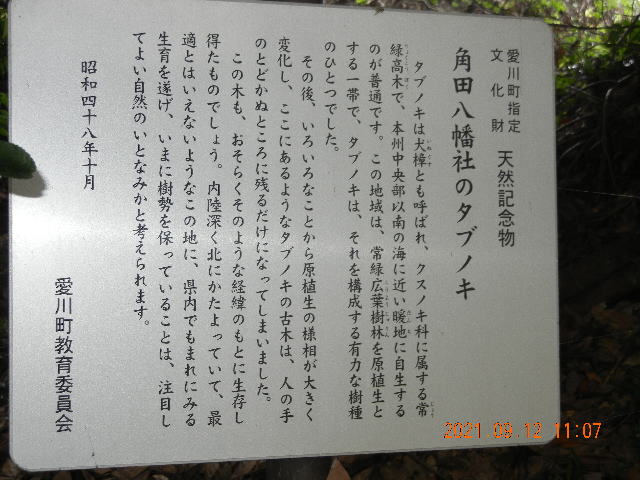 愛川町指定
文化財
天然記念物
角田八幡社のタブノキ
タブノキは犬樟とも呼ばれ、クスノキ科に属する常
緑高木で、本州中央部以南の海に近い暖地に自生する
のが普通です。この地域は、常緑広葉樹林を原植生と
する一帯で、タブノキは、それを構成する有力な樹種
のひとつでした。
その後、いろいろなことから原植生の様相が大きく
変化し、ここにあるようなタブノキの古木は、人の手
のとどかぬところに残るだけになってしまいました。
この木も、おそらくそのような経緯のもとに生存し
得たものでしょう。内陸深く北にかたよっていて、最
適とはいえないようなこの地に、県内でもまれにみる
生育を遂げ、いまに樹勢を保っていることは、注目し
てよい自然のいとなみかと考えられます。
昭和四十八年十月
愛川町教育委員会
2021.09.12 11:07